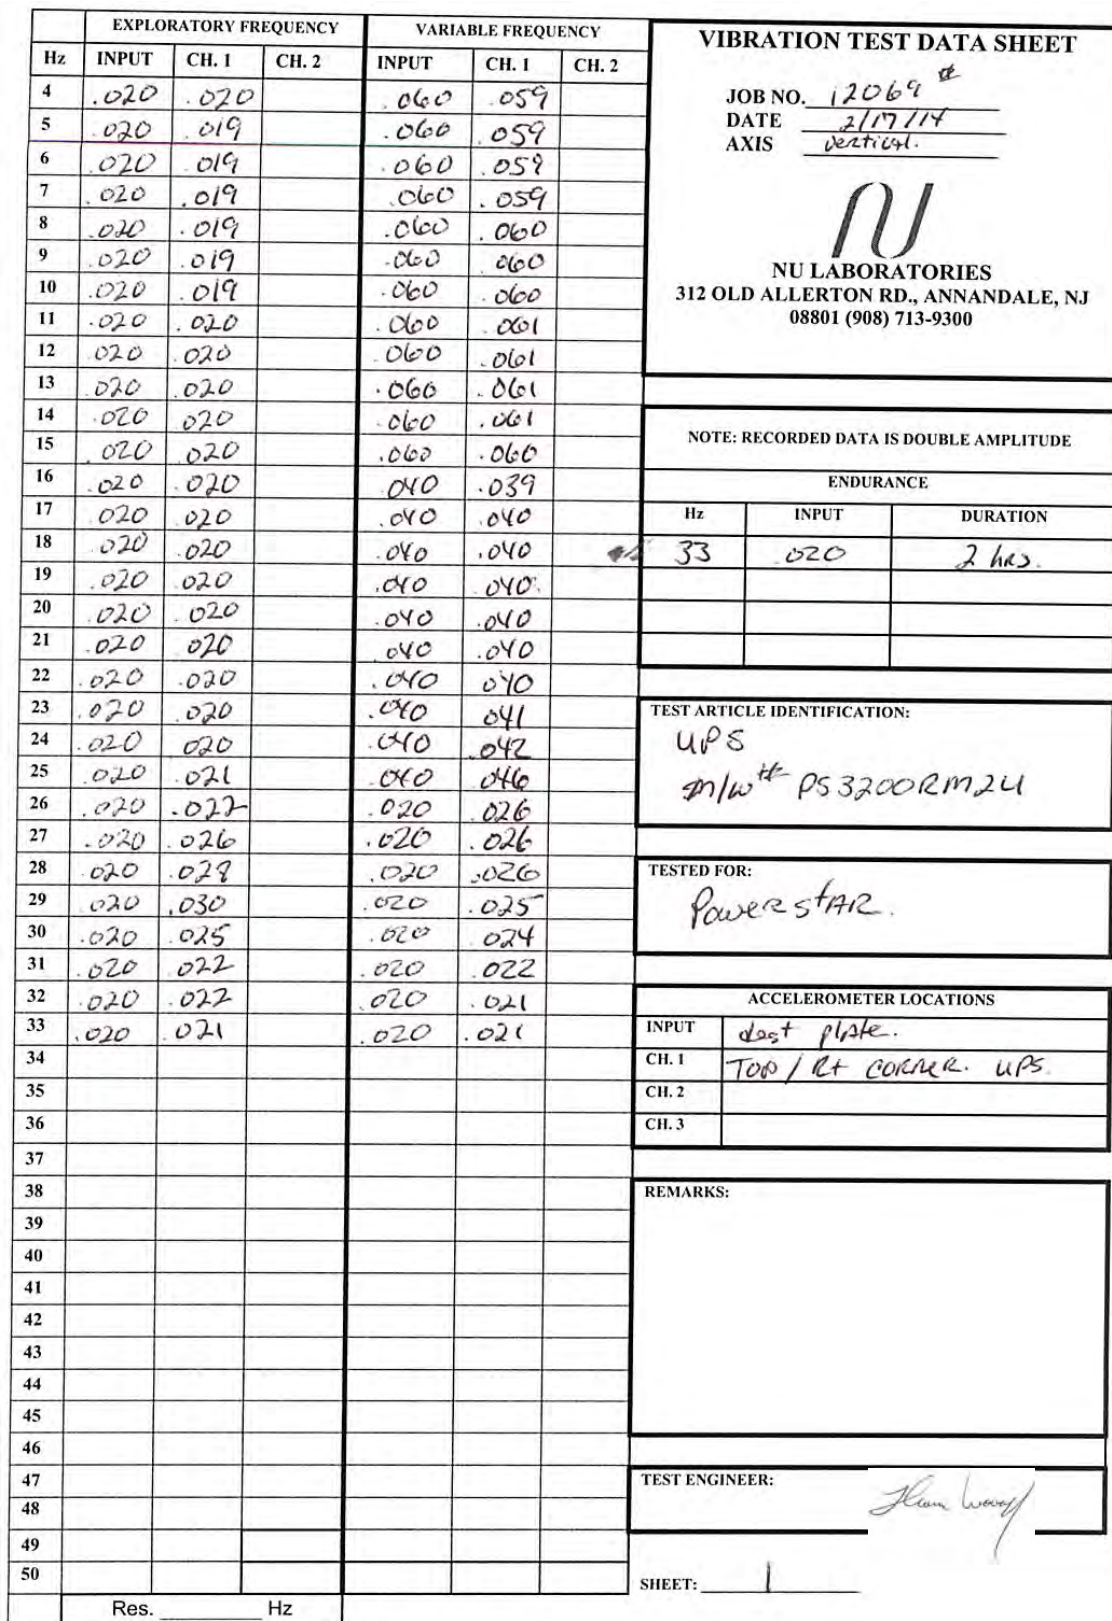 EXPLORATORY FREQUENCY VARIABLE FREQUENCY
Hz INPUT CH. 1 CH. 2 INPUT CH. 1 CH. 2
4 .020 .020 .060 .059
5 .020 .019 .060 .059
6 .020 .019 .060 .059
7 .020 .019 .060 .059
8 .020 .019 .060 .060
9 .020 .019 .060 .060
10 .020 .019 .060 .060
11 .020 .020 .060 .061
12 .020 .020 .060 .061
13 .020 .020 .060 .061
14 .020 .020 .060 .061
15 .020 .020 .060 .060
16 .020 .020 .040 .039
17 .020 .020 .040 .040
18 .020 .020 .040 .040
19 .020 .020 .040 .040
20 .020 .020 .040 .040
21 .020 .020 .040 .040
22 .020 .020 .040 .040
23 .020 .020 .040 .041
24 .020 .020 .040 .042
25 .020 .021 .040 .046
26 .020 .022 .020 .026
27 .020 .026 .020 .026
28 .020 .020 .026
29 .020 .030 .020 .025
30 .020 .025 .020 .024
31 .020 .022 .020 .022
32 .020 .022 .020 .021
33 .020 .021 .020 .021
34
35
36
37
38
39
40
41
42
43
44
45
46
47
48
49
50
Res. ________ Hz
VIBRATION TEST DATA SHEET
JOB NO. 12069 #
DATE 2/17/14
AXIS vertical.
NU
NU LABORATORIES
312 OLD ALLERTON RD., ANNANDALE, NJ
08801 (908) 713-9300
NOTE: RECORDED DATA IS DOUBLE AMPLITUDE
ENDURANCE
Hz INPUT DURATION
33 .020 2 hrs.
TEST ARTICLE IDENTIFICATION:
UPS
PS3200RM2U
TESTED FOR:
PowerstAR.
ACCELEROMETER LOCATIONS
INPUT plate.
CH. 1 TOP / Rt CORNER. UPS.
CH. 2
CH. 3
REMARKS:
TEST ENGINEER:
SHEET: 1